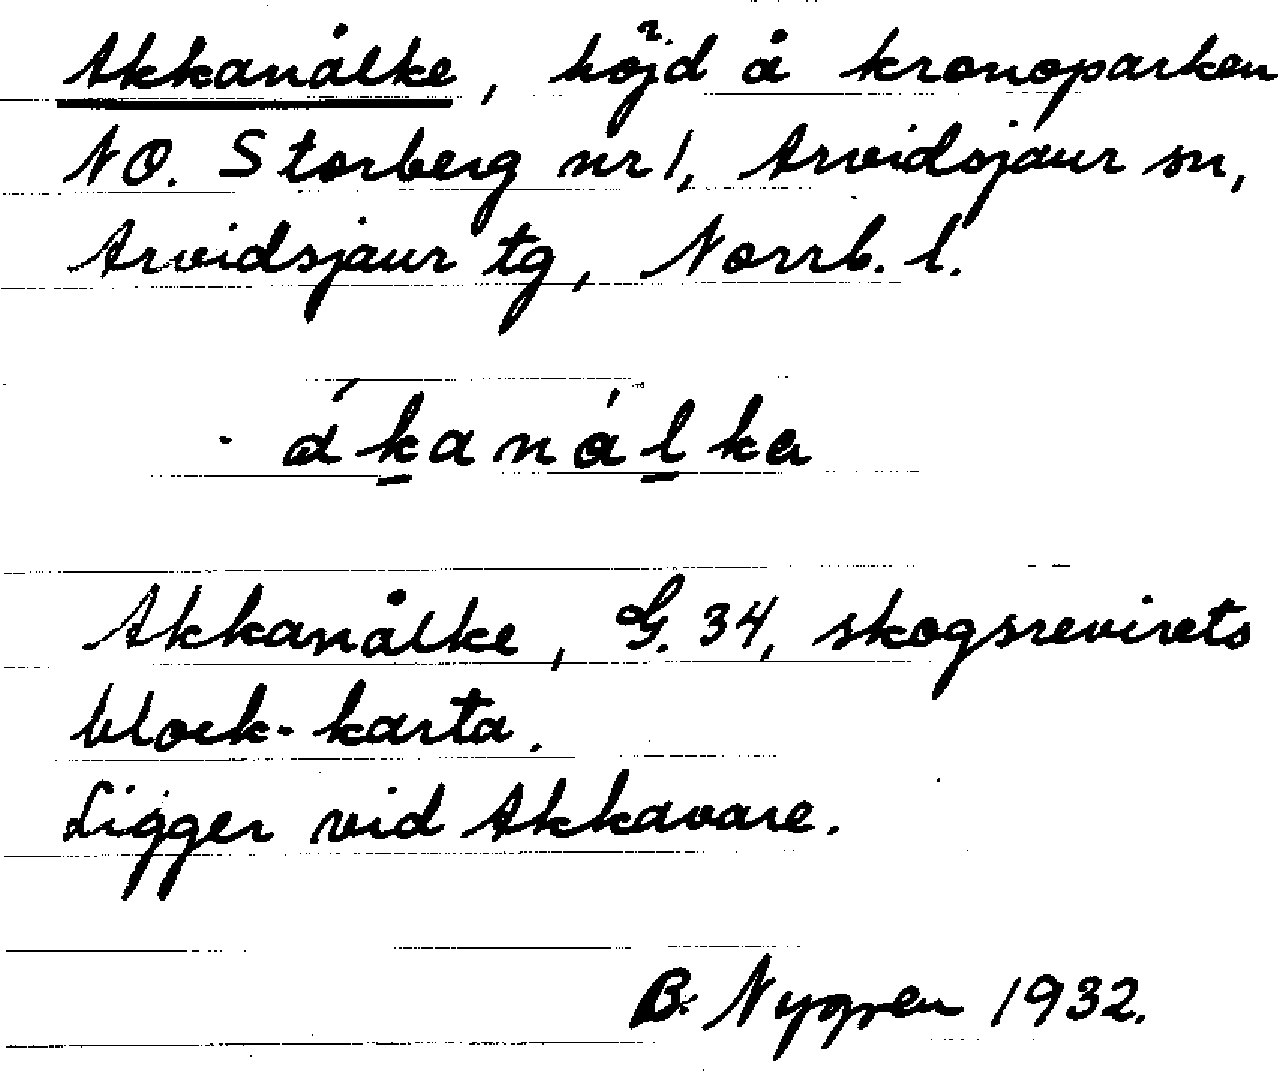 Akkanålke, höjd å kronoparken
NO. Storberg nr 1, Arvidsjaur sn,
Arvidsjaur tg, Norrb. l.
ákanálka
Akkanålke, G. 34, skogsrevirets
block-karta.
Ligger vid Akkavare.
B. Nygren 1932.